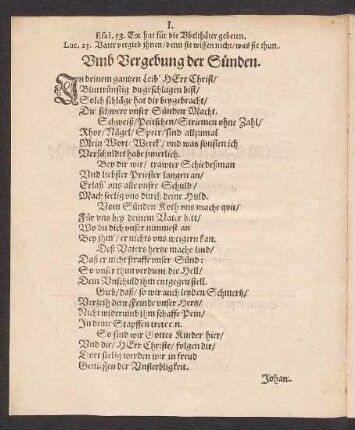 I.
Esai. 53. Er hat für die Vbelthäter gebeten.
Luc. 23. Vater vergieb jhnen / denn sie wissen nicht / was sie thun.
Vmb Vergebung der Sünden.
In deinem gantzen Leib' HErr Christ /
Blutrünstig du geschlagen bist /
Solch schläge hat dir beygebracht /
Die schwere vnser Sünden Macht.
Schweiß / Peitschen / Striemen ohne Zahl /
Rhor / Nägel / Speer / sind allzumal
Mein Wort / Werck / vnd was sonsten ich
Verschuldet habe jnnerlich.
Bey dir wir / trawter Schiedesman
Vnd liebster Priester langen an /
Erlaß' vns alle vnser Schuld /
Mach seelig vns durch deine Huld.
Vom Sünden Koth vns mache qvit /
Für vns bey deinem Vater bitt /
Wo du dich vnser nimmest an
Bey jhm / er nichts vns weigern kan.
Deß Vaters hertze mache lind /
Daß er nicht straffe vnser Sünd:
So vnser thun verdient die Hell /
Dein Vnschuld jhm entgegen stell.
Gieb / daß / so wir auch leyden Schmertz /
Verzeih dem Feinde vnser Hertz /
Nicht widerumb jhm schaffe Pein /
In deine Stapffen trete ein.
So sind wir Gottes Kinder hier /
Vnd die / HErr Christe / folgen dir /
Dort seelig werden wir in freud
Geniessen der Vnsterbligkeit.
Johan-